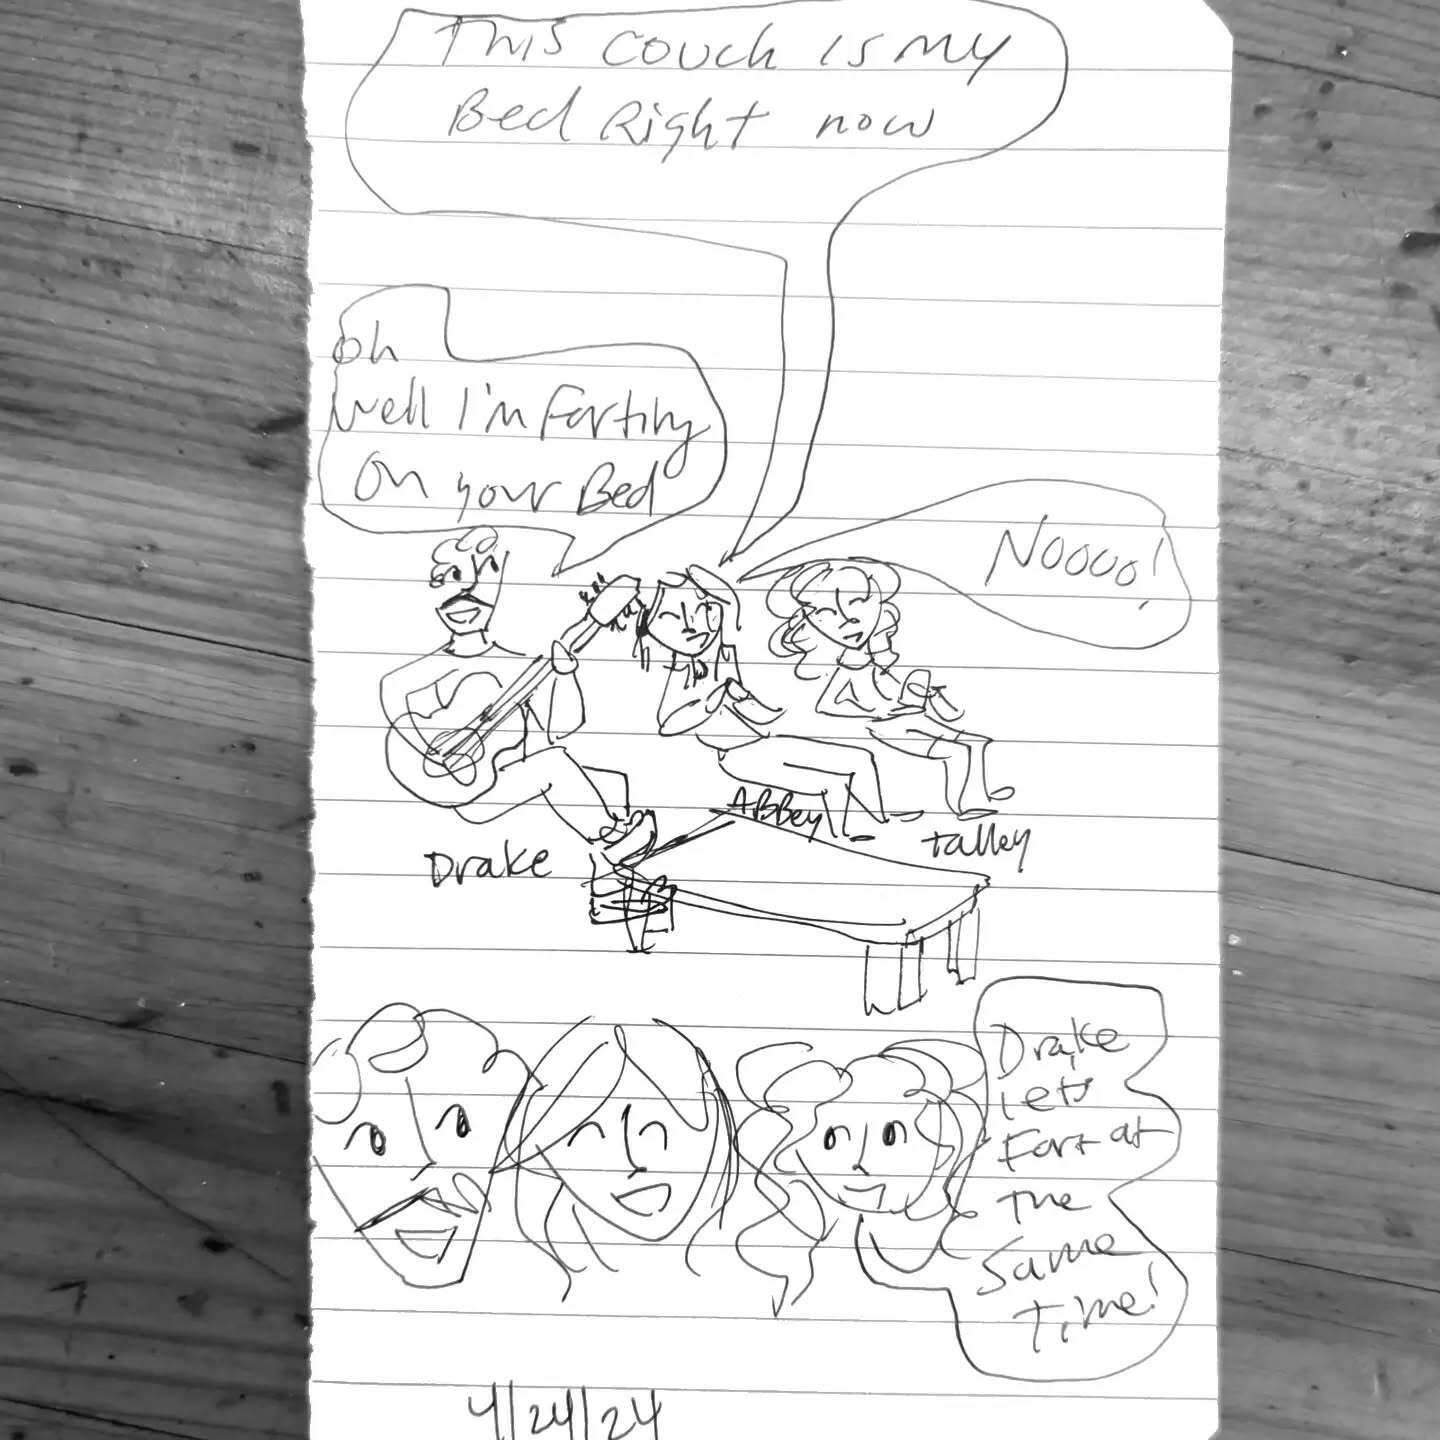 This couch is my
Bed Right now
oh
well I'm Farting
on your Bed
Noooo!
Drake
ABBey
talley
Drake
lets
Fart at
the
Same
Time!
4/24/24